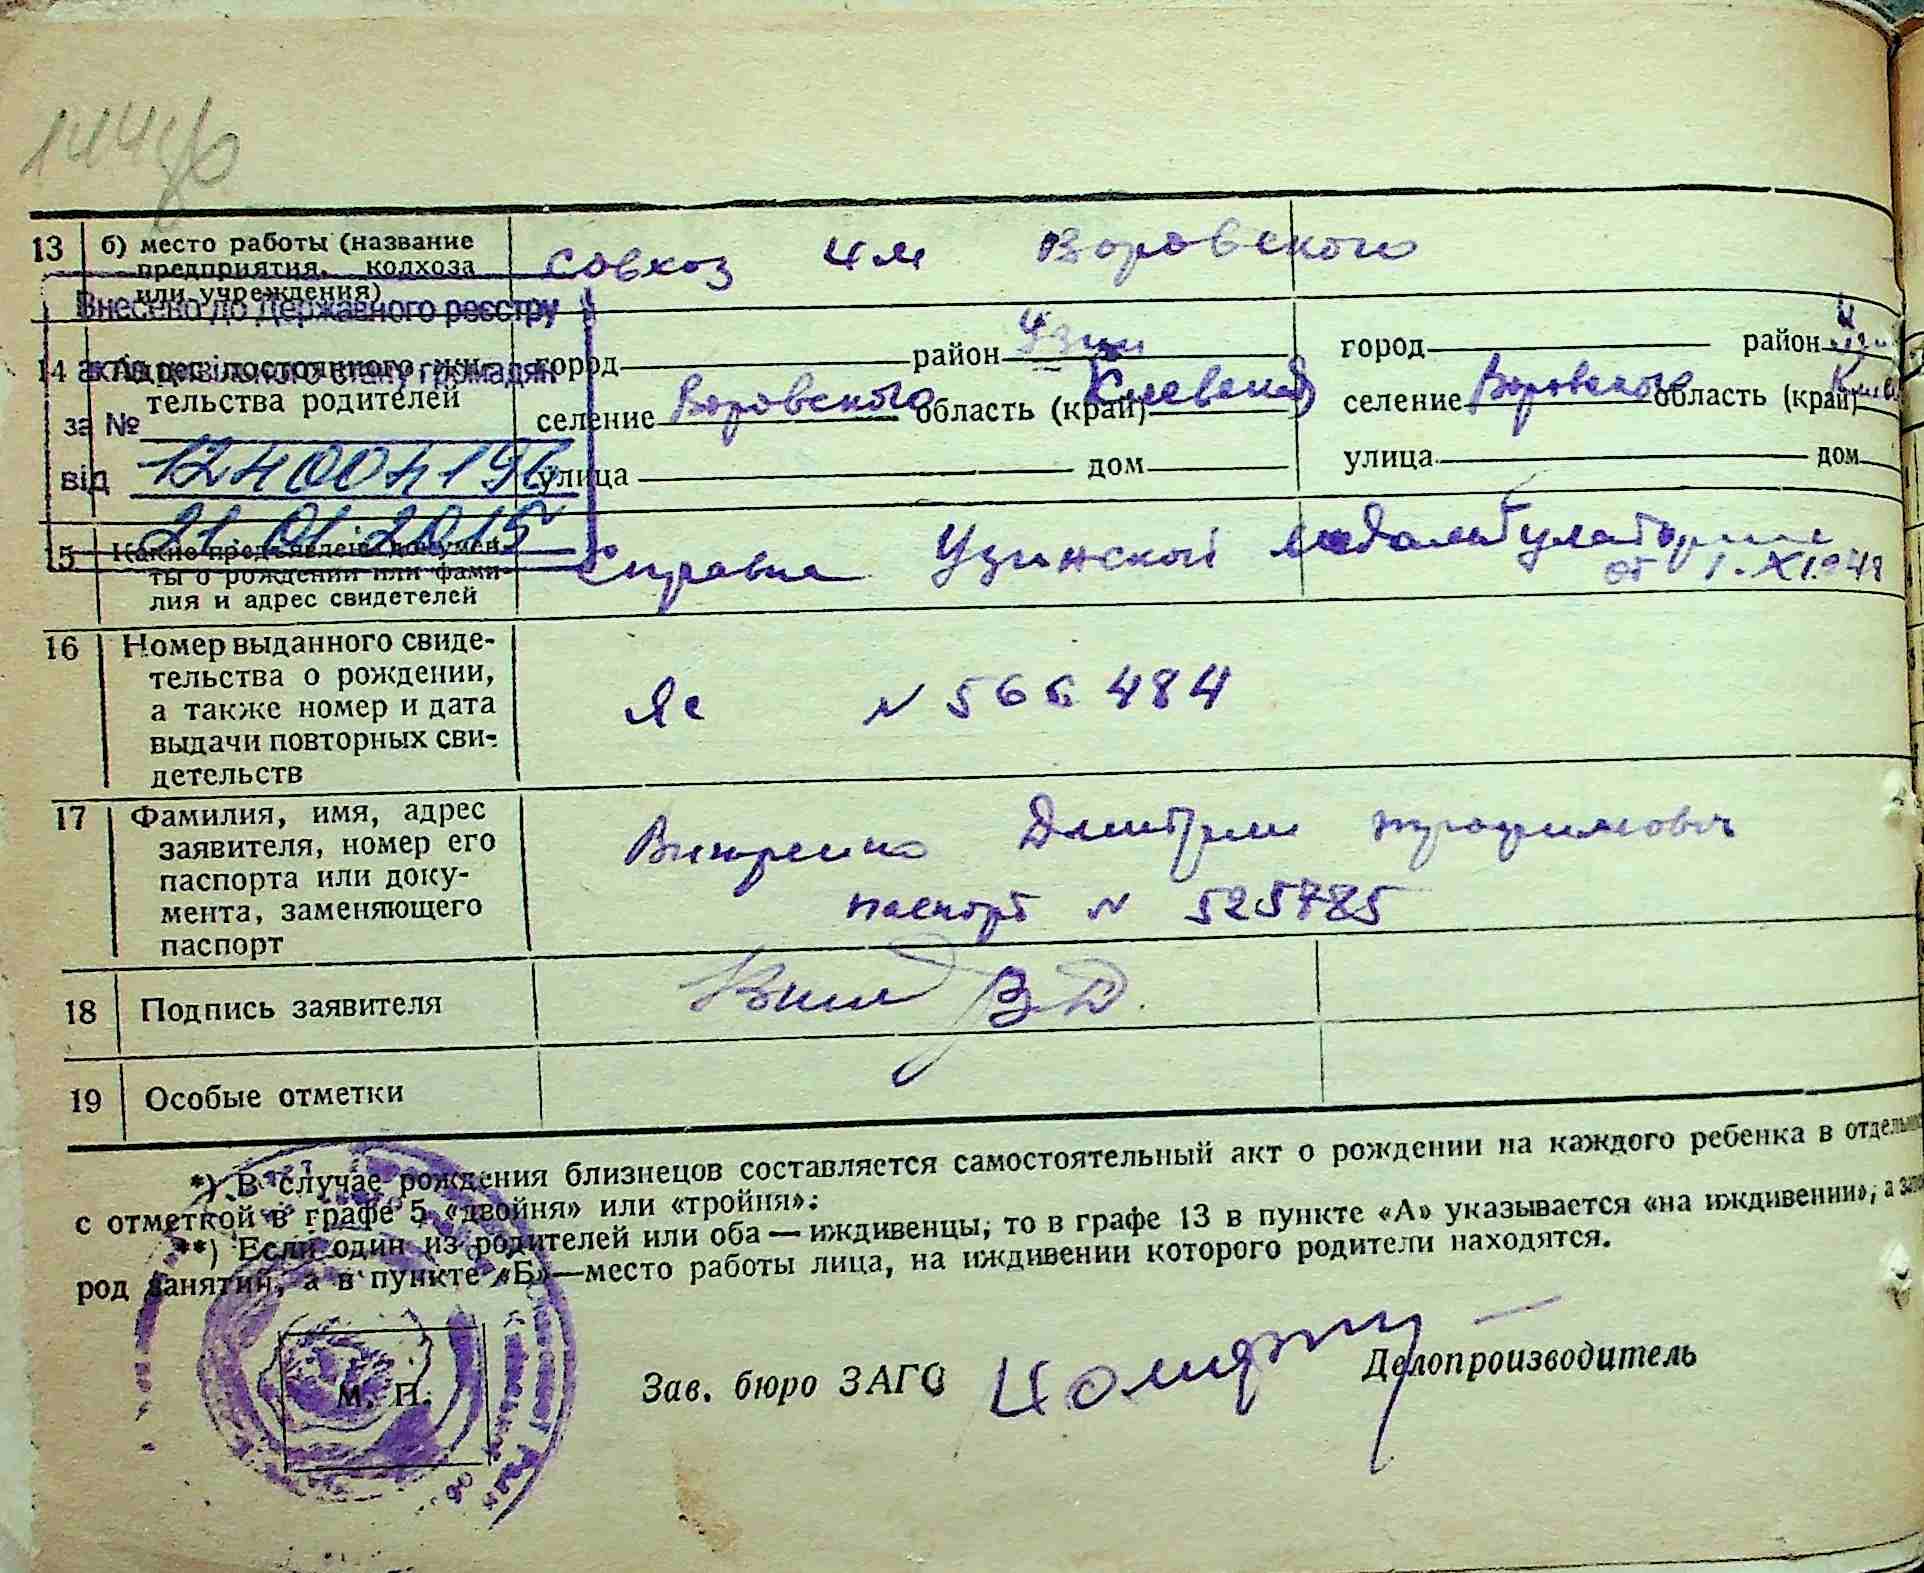 13 б) место работы (название предприятия, колхоза или учреждения) совхоз им Воровского
Внесено до Державного реєстру
актів цивільного стану громадян
за №
12400
від 21.01.2015
14 Адрес постоянного жительства родителей
город район Узин город район Узин
селение Воровского область (край) Киевской селение Воровского область (край) Киев
улица дом улица дом
15 Какие предъявлены документы о рождении или фамилия и адрес свидетелей
Справка Узинской медамбулатории
от 1.XI.948
16 Номер выданного свидетельства о рождении, а также номер и дата выдачи повторных свидетельств
Яс N 566484
17 Фамилия, имя, адрес заявителя, номер его паспорта или документа, заменяющего паспорт
Дмитрий Трофимович
паспорт N 525785
18 Подпись заявителя
19 Особые отметки
*) В случае рождения близнецов составляется самостоятельный акт о рождении на каждого ребенка в отдельн
с отметкой в графе 5 «двойня» или «тройня».
**) Если один из родителей или оба — иждивенцы, то в графе 13 в пункте «А» указывается «на иждивении», а
род занятий, а в пункте «Б»—место работы лица, на иждивении которого родители находятся.
М. П.
Зав. бюро ЗАГС Делопроизводитель